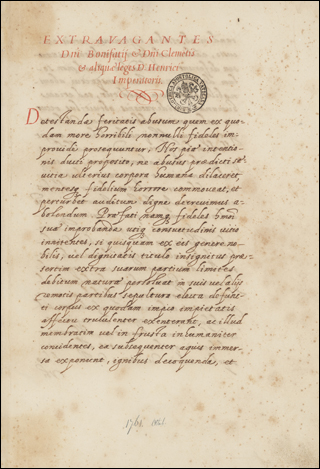 EXTRAVAGANTES
Dñi Bonifatij. & Dñi Clemētis
& aliquæ leges D. Henrici
Imperatoris.
Detestanda feritatis abusum quem ex quo-
dam more horribili nonnulli fideles im-
provide prosequuntur, Nos piæ intentio-
nis ducti proposito, ne abusus prædicti sæ-
uitia ulterius corpora humana dilaceret,
mentesq fidelium horrore commoueat, et
perturbet auditum digne decreuimus a-
bolendum. Præfati namq fideles huius
suæ improbandæ utiq consuetudinis uitio
innitentes, si quisquam ex eis genere no-
bilis, uel dignitatis titulo insignitus præ-
sertim extra suarum partium limites
debitum naturæ persoluat in suis uel alijs
remotis partibus sepultura electa defuncti
corpus ex quodam impio impietatis
affectu truculenter exenterant, ac illud
membratim uel in frusta inhumaniter
concidentes, ea subsequenter aquis immer-
sa exponunt, ignibus decoquenda, et